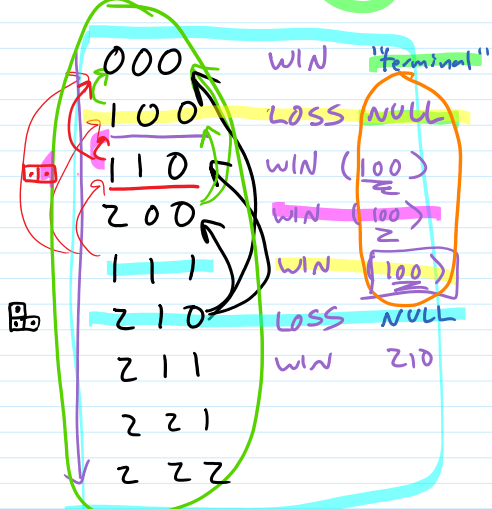 000 WIN "terminal"
100 LOSS NULL
110 WIN (100)
200 WIN (100)
111 WIN (100)
210 LOSS NULL
211 WIN 210
221
222